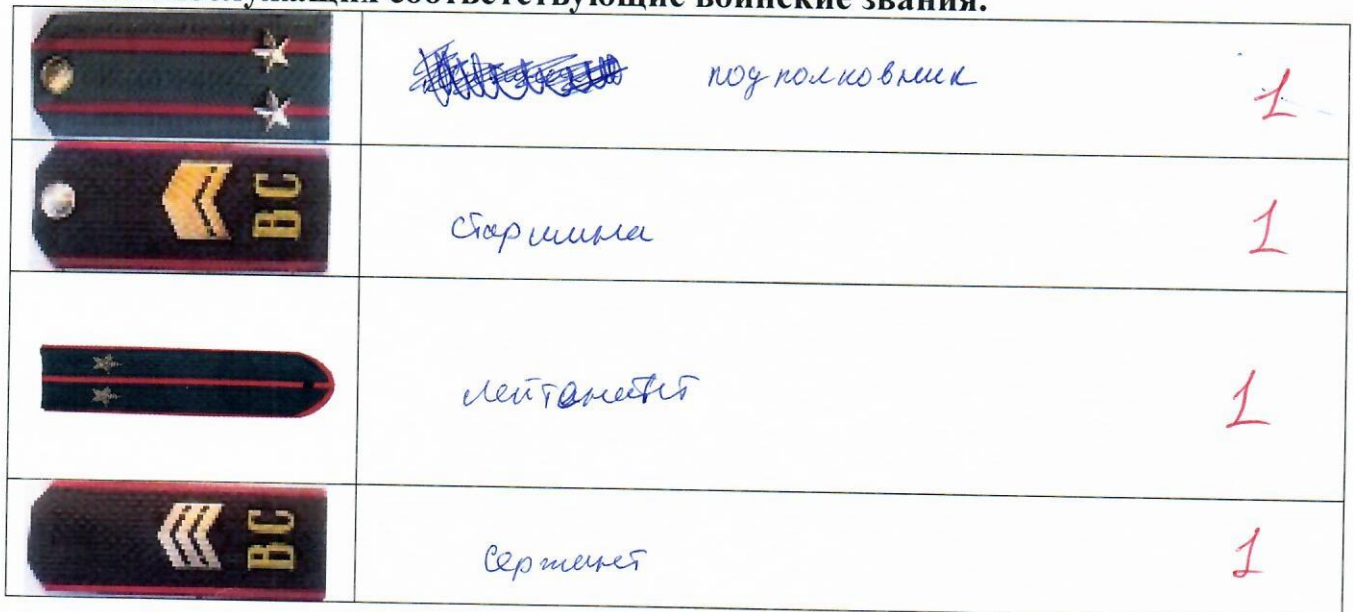 служащих соответствующие воинские звания.
подполковник 1
ВС старшина 1
лейтенант 1
ВС сержант 1